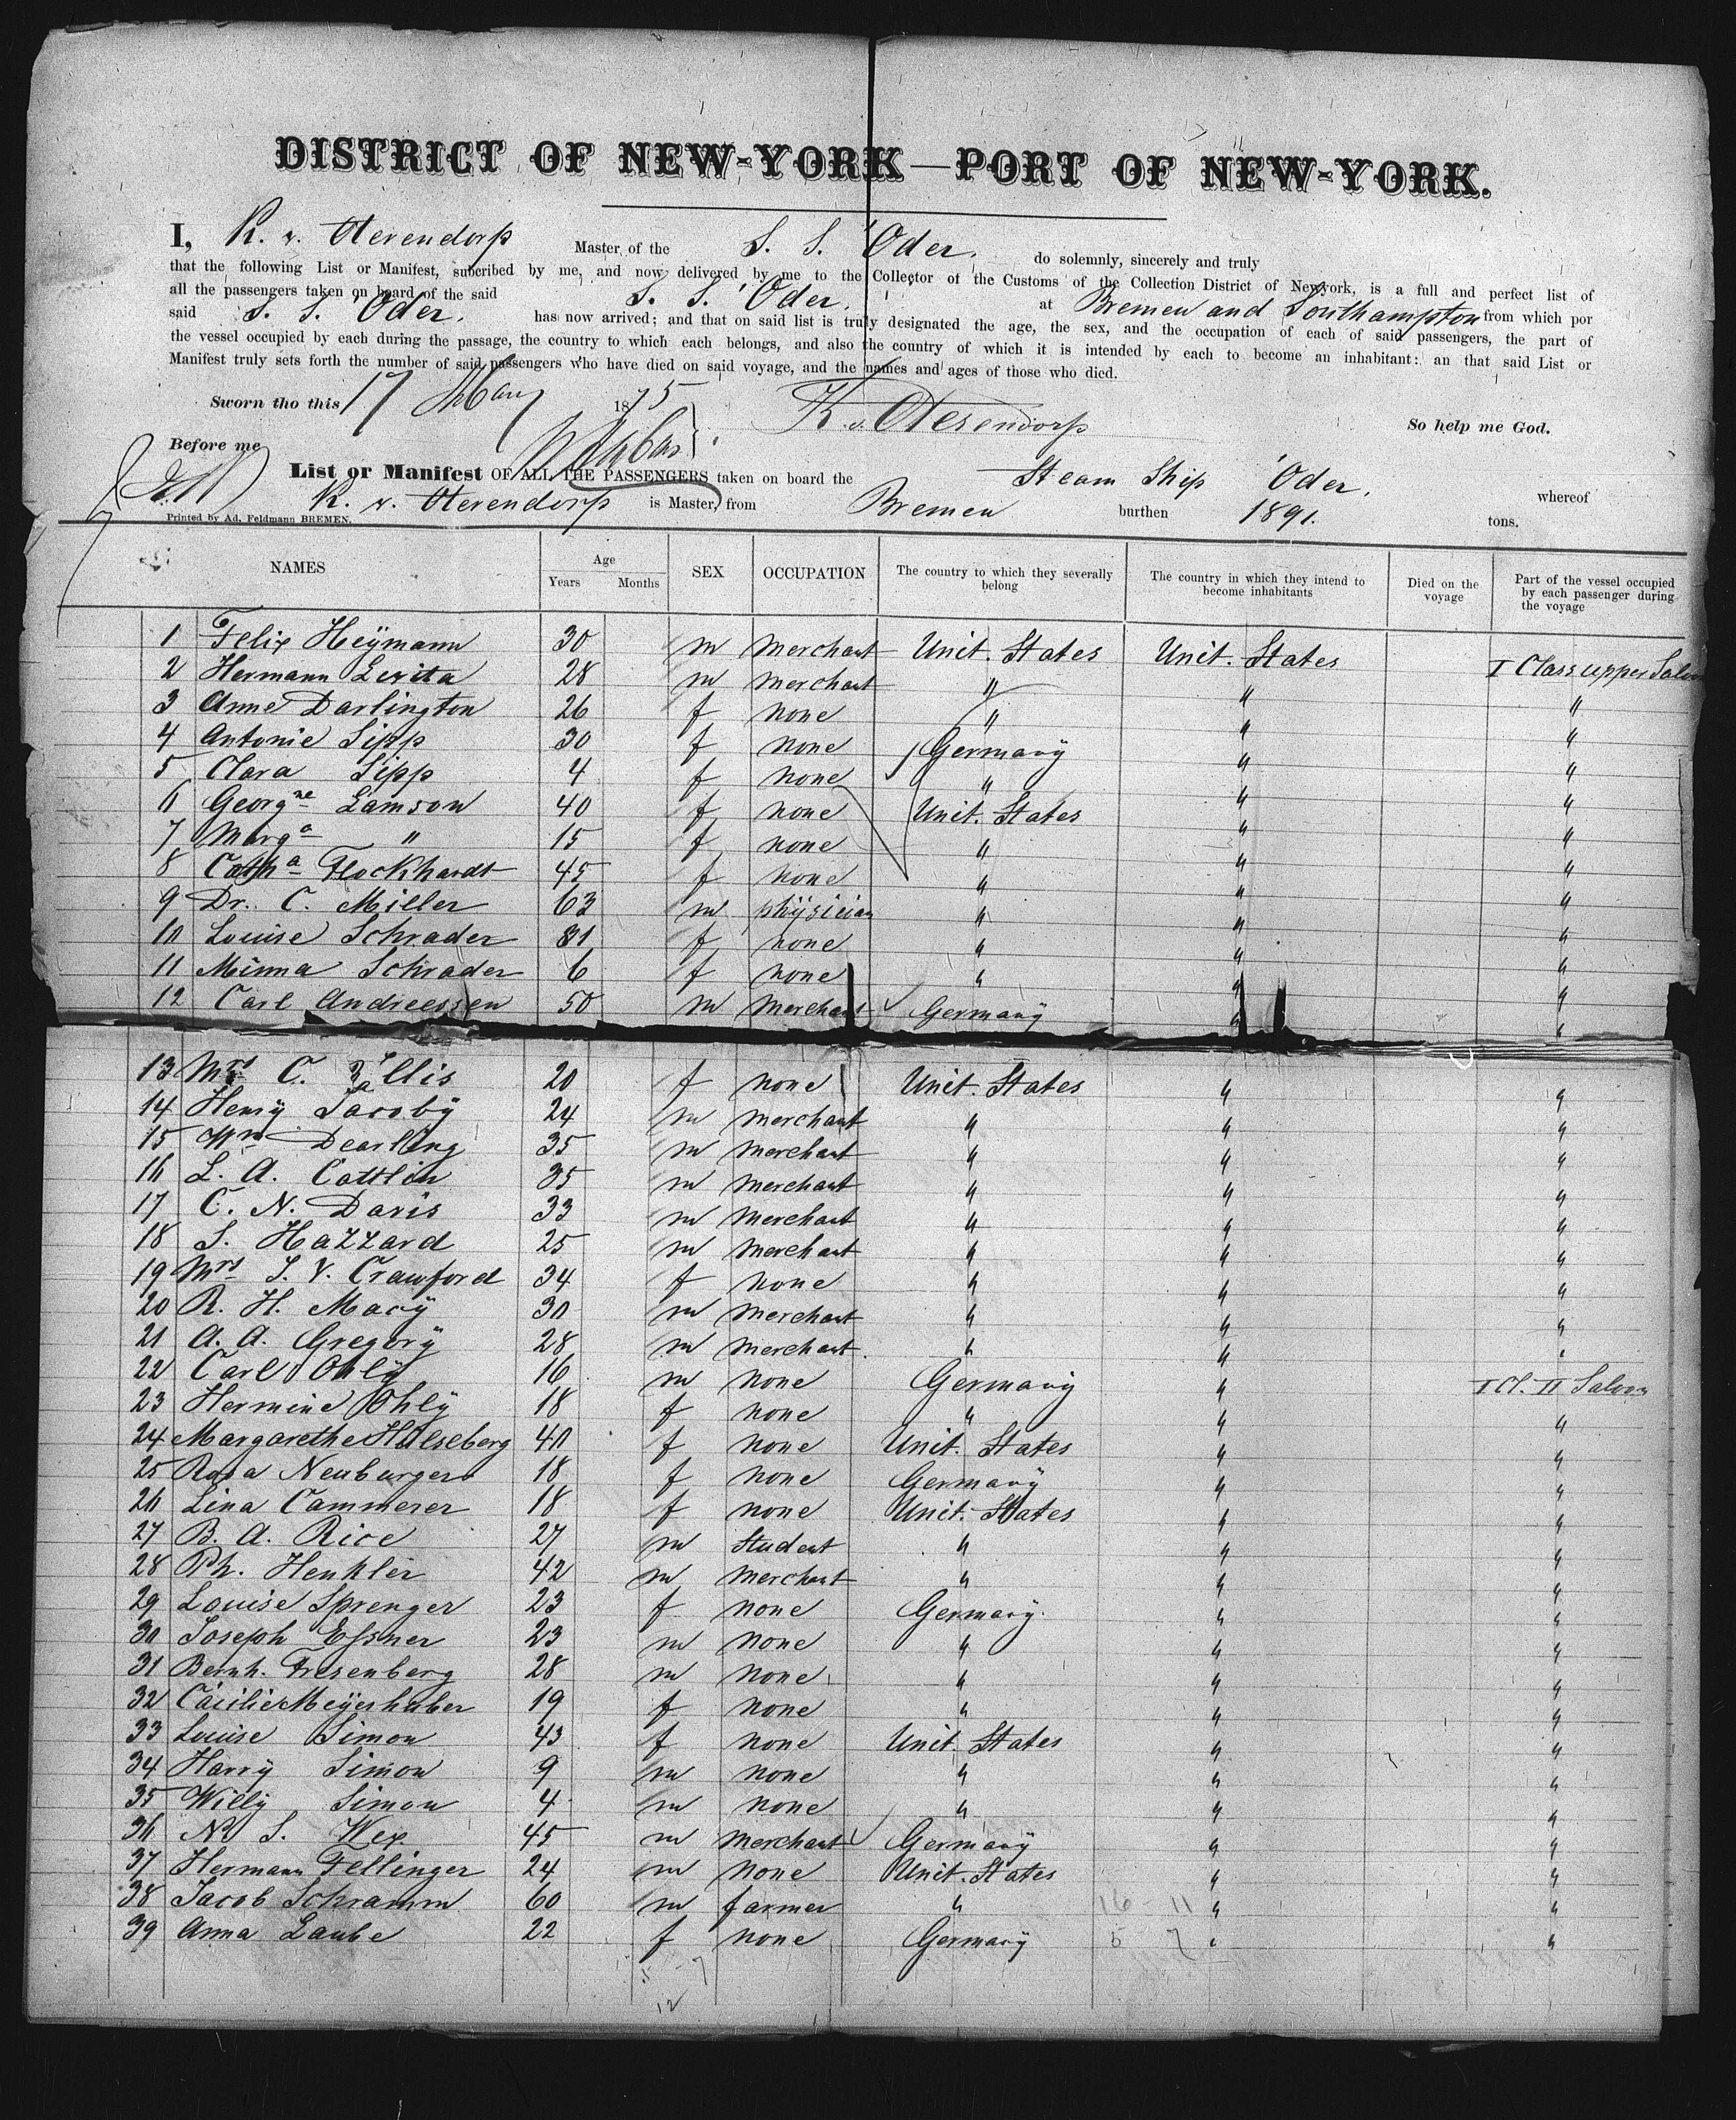 DISTRICT OF NEW-YORK—PORT OF NEW-YORK.
I, K. v. Oterendorp Master of the S. S. Oder. do solemnly, sincerely and truly
that the following List or Manifest, subcribed by me, and now delivered by me to the Collector of the Customs of the Collection District of Newyork, is a full and perfect list of
all the passengers taken on board of the said S. S. Oder. at Bremen and Southampton from which por
said S. S. Oder. has now arrived; and that on said list is truly designated the age, the sex, and the occupation of each of said passengers, the part of
the vessel occupied by each during the passage, the country to which each belongs, and also the country of which it is intended by each to become an inhabitant: an that said List or
Manifest truly sets forth the number of said passengers who have died on said voyage, and the names and ages of those who died.
Sworn tho this 17 May 1875 K. v. Oterendorp So help me God.
Before me
List or Manifest OF ALL THE PASSENGERS taken on board the Steam Ship Oder. whereof
K. v. Oterendorp is Master, from Bremen burthen 1891. tons.
Printed by Ad. Feldmann BREMEN.
NAMES Age Years Months SEX OCCUPATION The country to which they severally belong The country in which they intend to become inhabitants Died on the voyage Part of the vessel occupied by each passenger during the voyage
1 Felix Heymann 30 m merchant Unit. States Unit. States I Class upper Saloon
2 Hermann Levita 28 m merchant " " "
3 Anne Darlington 26 f none " " "
4 Antonie Sipp 30 f none Germany " "
5 Clara Sipp 4 f none " " "
6 Georgne Lamson 40 f none Unit. States " "
7 Marga " 15 f none " " "
8 Catha Flockhardt 45 f none " " "
9 Dr. C. Miller 63 m physician " " "
10 Louise Schrader 31 f none " " "
11 Minna Schrader 6 f none " " "
12 Carl Andreessen 50 m merchant Germany " "
13 Mrs C. 20 f none Unit. States " "
14 Henry Jacoby 24 m merchant " " "
15 Wm Dearling 35 m merchant " " "
16 L. A. Cattlin 35 m merchant " " "
17 C. N. Davis 33 m merchant " " "
18 S. Hazzard 25 m merchant " " "
19 Mrs S. V. Crawford 34 f none " " "
20 R. H. Macy 30 m merchant " " "
21 A. A. Gregory 28 m merchant " " "
22 Carl Ohly 16 m none Germany " I Cl. II Saloon
23 Hermine Ohly 18 f none " " "
24 Margarethe Hülseberg 40 f none Unit. States " "
25 Rosa Neuburger 18 f none Germany " "
26 Lina Cammerer 18 f none Unit. States " "
27 B. A. Rice 27 m Student " " "
28 Ph. Henkler 42 m merchant " " "
29 Louise Sprenger 23 f none Germany. " "
30 Joseph Essner 23 m none " " "
31 Bernh. Fresenberg 28 m none " " "
32 Cäcilie Meyerhuber 19 f none " " "
33 Louise Simon 43 f none Unit. States " "
34 Harry Simon 9 m none " " "
35 Willy Simon 4 m none " " "
36 N. S. Wex 45 m merchant Germany " "
37 Hermann Fellinger 24 m none Unit. States " "
38 Jacob Schramm 60 m farmer " " "
39 Anna Laube 22 f none Germany " "
16 - 11
5 7
5 - 7
12